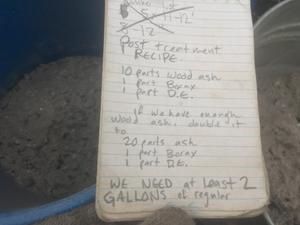 5 11-12'
3 - 12'
Post treatment
RECIPE.
10 parts wood ash
1 part Borax
1 part D.E.
If we have enough
wood ash, double it
to
20 parts ash
1 part Borax
1 part D.E.
WE NEED at least 2
GALLONS of regular